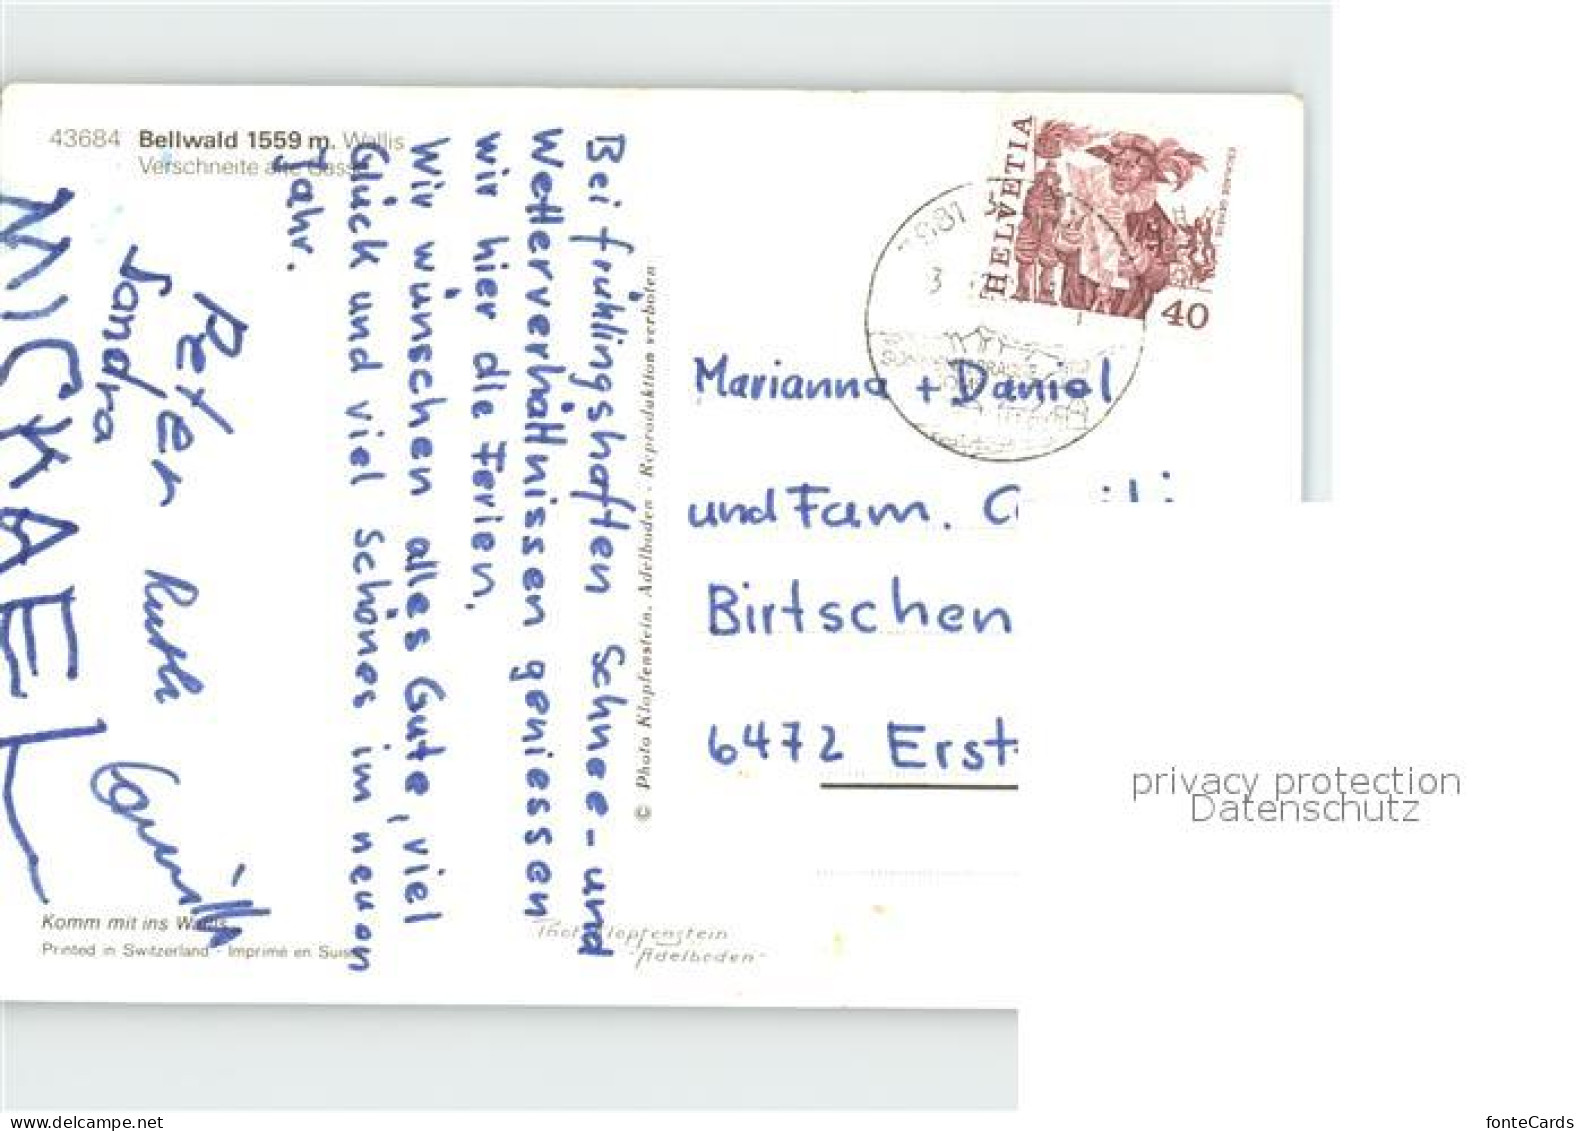 43684 Bellwald 1559 m. Wallis
Verschneite alte Gasse
Bei frühlingshaften Schnee- und
Wetterverhältnissen geniessen
wir hier die Ferien.
Wir wünschen alles Gute, viel
Glück und viel Schönes im neuen
Jahr.
Peter
Sandra
Ruth
MICKAEL
Komm mit ins Wallis
Printed in Switzerland - Imprimé en Suisse
© Photo Klopfenstein, Adelboden - Reproduktion verboten
Phot Klopfenstein
- Adelboden -
HELVETIA
ESCALADE GENÈVE
40
Marianna + Daniel
und Fam.
Birtschen
6472 Erst
privacy protection
Datenschutz
www.delcampe.net
fonteCards